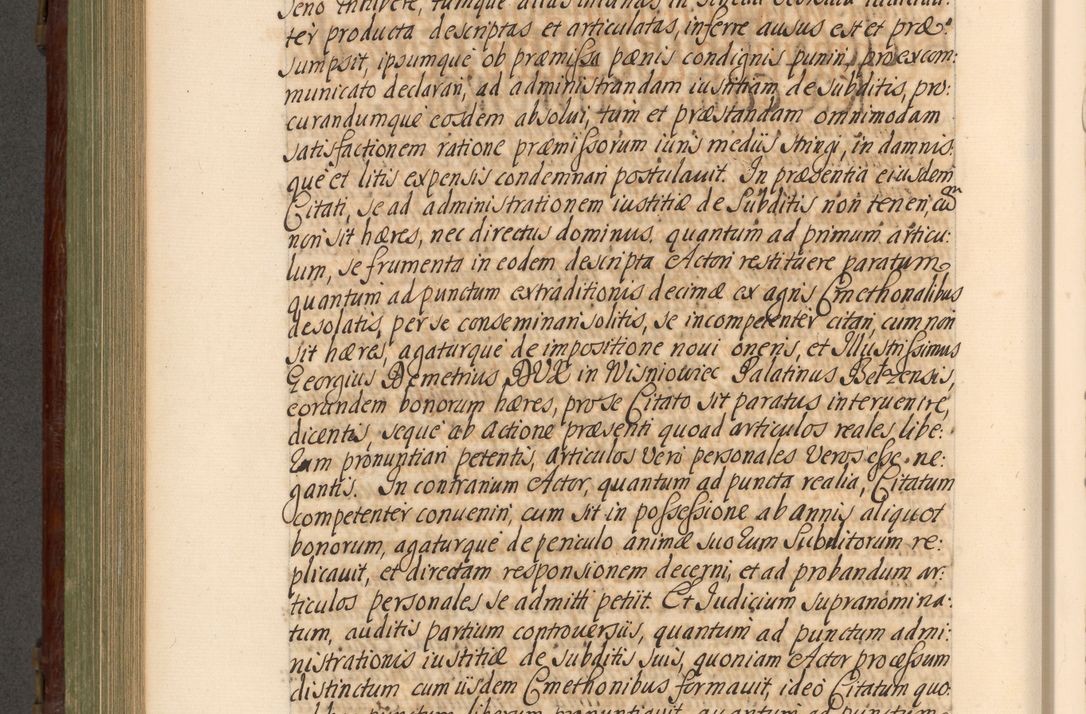 ter producta descriptas et articulatas, inferre ausus est et præ:
sumpsit, ipsumque ob præmissa pænis condignis puniri, pro excom:
municato declarari, ad administrandam iustitiam de subditis, pro:
curandumque eosdem absolui, tum et præstandam omnimodam
satisfactionem ratione præmissorum iuris medijs stringi, in damnis:
que et litis expensis condemnari postulauit. In præsentia eiusdem
Citati, se ad administrationem iustitiæ de Subditis non teneri, cũ
non sit hæres, nec directus dominus, quantum ad primum articu:
lum, se frumenta in eodem descripta Actori restituere paratum,
quantum ad punctum extraditionis decimæ ex agris Cmethonalibus
desolatis, per se conseminari solitis, se incompetenter citari, cum non
sit hæres, agaturque de impositione noui oneris, et Illustrissimus
Georgius Demetrius DVX in Wisniowiec Palatinus Belzensis,
eorundem bonorum hæres, pro se Citato sit paratus interuenire,
dicentis, seque ab Actione præsenti quoad articulos reales libe:
rum pronuntiari petentis, articulos veri personales veros esse ne:
gantis. In contrarium Actor, quantum ad puncta realia, Citatum
competenter conueniri, cum sit in possessione ab annis aliquot
bonorum, agaturque de periculo animæ suorum Subditorum re:
plicauit, et directam responsionem decerni, et ad probandum ar:
ticulos personales se admitti petijt. Et Judicium supranomina:
tum, auditis partium controuersijs, quantum ad punctum admi:
nistrationis iustitiæ de subditis suis, quoniam Actor processum
distinctum cum ijsdem Cmethonibus formauit, ideo Citatum quo